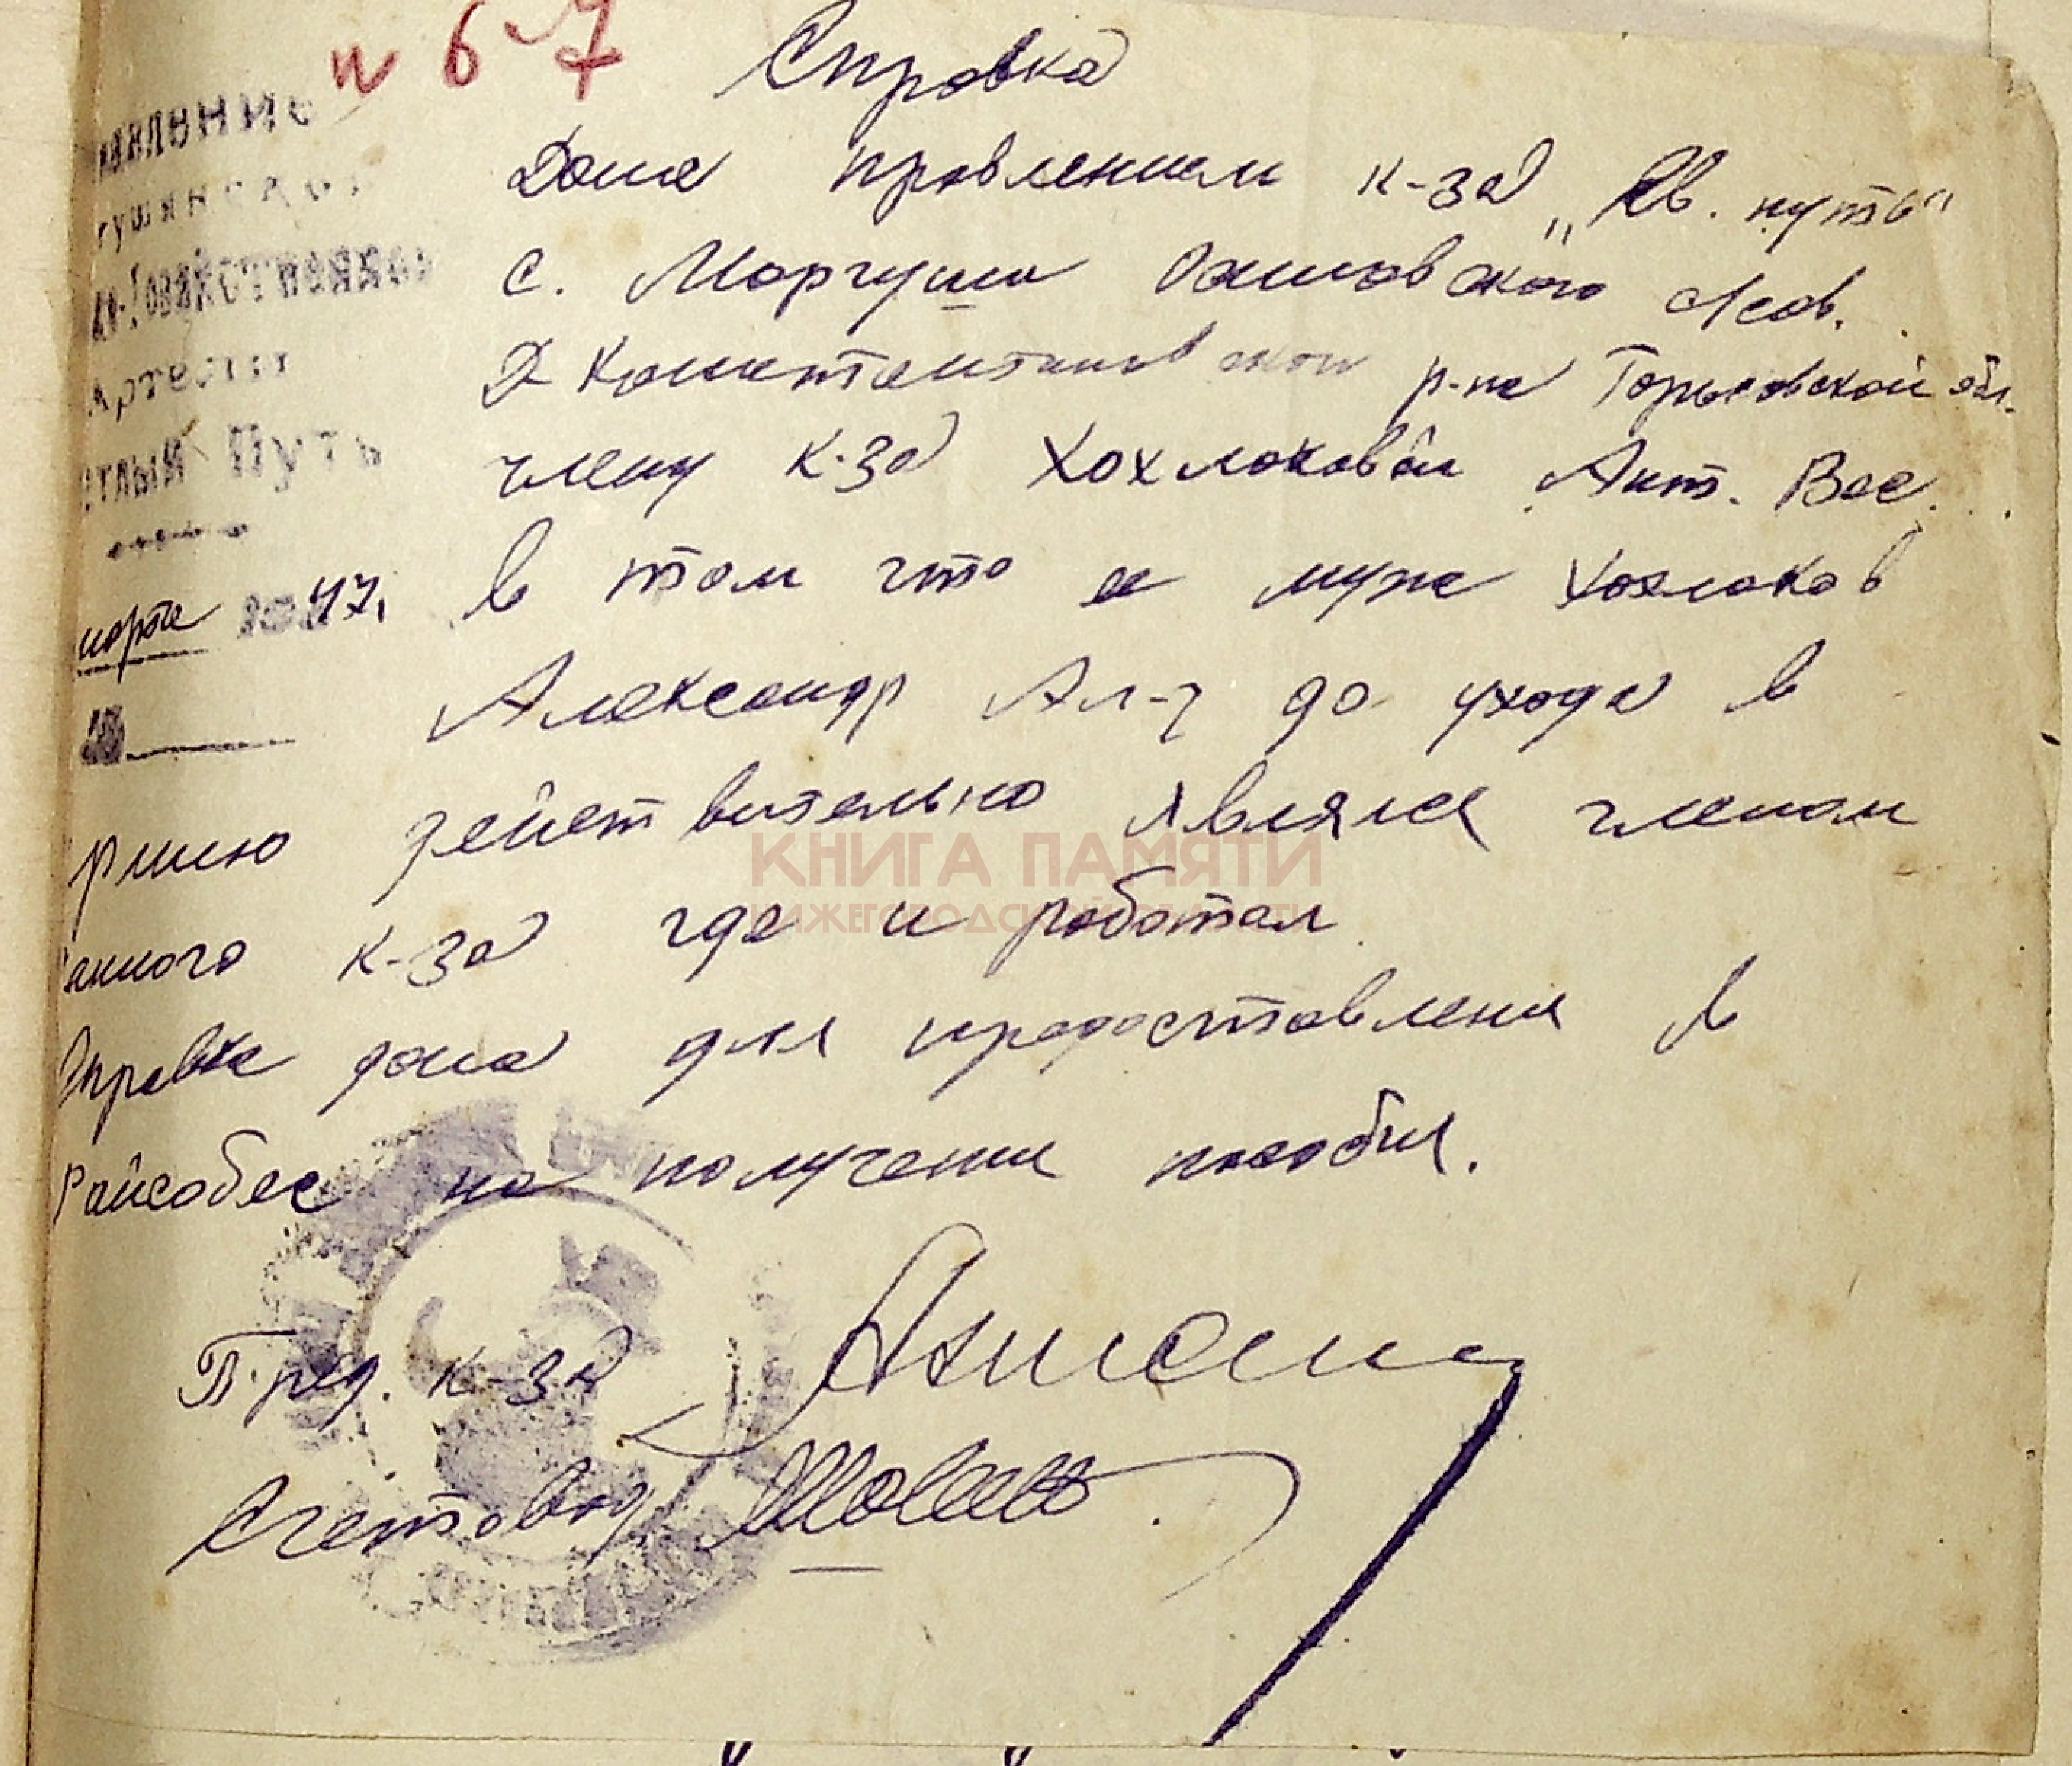 № 67
Справка
Дана правлением к-за „Св. путь"
с. Маргуша Сов.
Д Константиновскои р-на Горьковской обл.
члену к-за Хохлоковой Ант. Вас.
в том что е муж Хохлоков
Александр Ал-ч до ухода в
рмию действительно являлся членом
анного к-за где и работал
Справка дана для предоставления в
Райсобес на получени пособия.
Пред. к-за
Счетовод
авление
гушинског
Артели
етлый Путь
марта 47.
КНИГА ПАМЯТИ
НИЖЕГОРОДСКОЙ ОБЛАСТИ